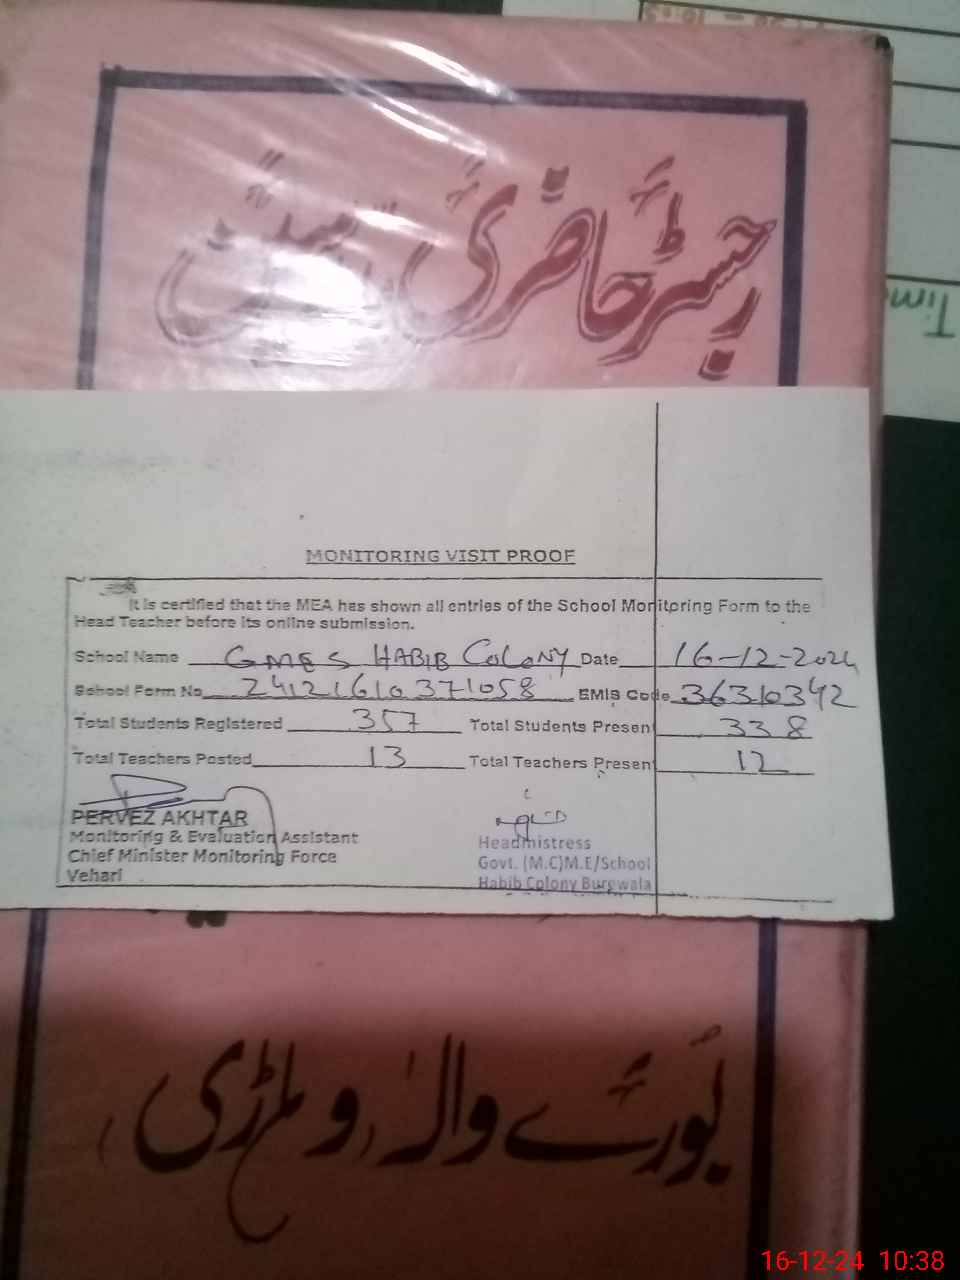 رجسٹر حاضری
MONITORING VISIT PROOF
It is certified that the MEA has shown all entries of the School Monitoring Form to the
Head Teacher before its online submission.
School Name GMES HABIB COLONY Date 16-12-2024
School Form No 24121610371058 EMIS Code 36310342
Total Students Registered 357 Total Students Present 338
Total Teachers Posted 13 Total Teachers Present 12
PERVEZ AKHTAR
Monitoring & Evaluation Assistant
Chief Minister Monitoring Force
Vehari
Headmistress
Govt. (M.C)M.E/School
Habib Colony Burewala
بورے والہ وہاڑی
16-12-24 10:38